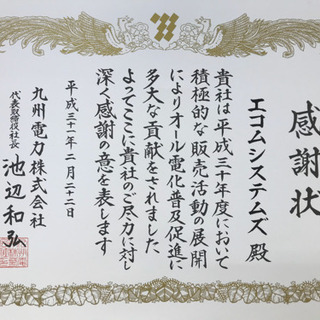 感謝状
エコムシステムズ 殿
貴社は平成三十年度において
積極的な販売活動の展開
によりオール電化普及促進に
多大な貢献をされました
よってここに貴社のご尽力に対し
深く感謝の意を表します
平成三十一年二月二十二日
九州電力株式会社
代表取締役社長 池辺和弘